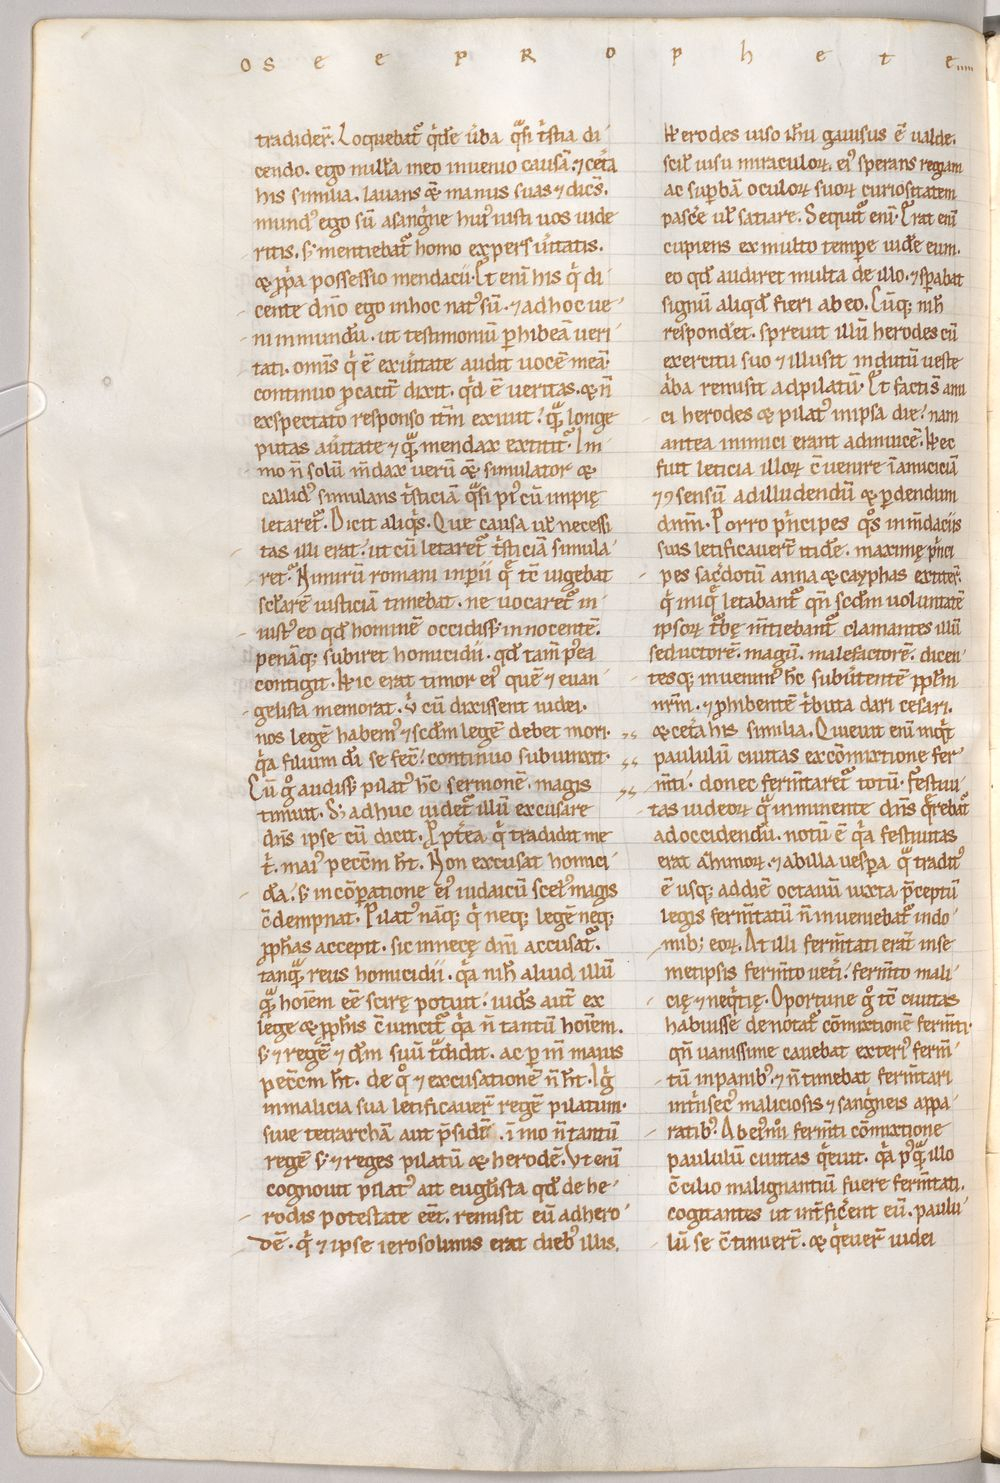 O S E E P R O P H E T E
tradider̄. Loquebat᷑ qͥde ūba qͣsi tͥstia di
cendo. ego nullā ineo inuenio causā. ⁊ cet̄a
his similia. lauans q̄ manus suas ⁊ dicēs.
mundꝰ ego sū asangͥne huiꝰ iusti uos uide
ritis. sꝫ mentiebat᷑ homo expers ūitatis.
& ꝓpͥa possessio mendacii. Et eni his qͥ di
cente dn̄o ego inhoc natꝰ sū. ⁊ adhoc ue
ni inmundū. ut testimoniū ꝑhibeā ueri
tati. omīs qͥ ē exūitate audit uocē meā.
continuo ꝓcacit᷑ dixit. qͥd ē ueritas. & n̄
exspectato responso itm̄ exiuit. qͣ longe
putas aūitate ⁊ qͣ mendax extitit. Im
mo n̄ solū m̄dax uerū & simulator &
callidꝰ simulans tͥsticiā qͣsi pͥꝰ cū impię
letaret᷑. Dicit aliqͥs. Que causa ul̄ necessi
tas illi erat. ut cū letaret᷑ tͥsticiā simula
ret. Nimirū romani inperii qͥ tc̄ uigebat
sclarē iusticiā timebat. ne uocaret᷑ in
iustꝰ eo qd̄ hominē occidisset innocentē.
penāqꝫ subiret homicidii. qd̄ tam̄ p̄ea
contigit. Hic erat timor eiꝰ quē ⁊ euan
gelista memorat. ꝰ cū dixissent iudei.
nos legē habemꝰ ⁊ scdm̄ legē debet mori.
qͥa filium dī se fec̄. continuo subiunxit.
Cū gͦ audisset pilatꝰ hc̄ sermonē. magis
timuit. Sꝫ adhuc uidet᷑ illū excusare
dn̄s ipse cū dicit. Propt̄ea qͥ tradidit me
tͥ. maiꝰ peccm̄ ht̄. Non excusat homici
dā. sꝫ incōparatione eiꝰ iudaicū scelꝰ magis
c̄dempnat. Pilatꝰ nāqꝫ qͥ neqꝫ legē neqꝫ
ꝓphas accepit. sic innecę dm̄ accusat᷑.
tanqͣ reus homicidii. qͥa nih̄ aliud illū
qͣ hoīem eē scirę potuit. iudēs aut̄ ex
lege & ꝓphis c̄uincit᷑ qͥa n̄ tantū hoīem.
sꝫ ⁊ regē ⁊ dm̄ suū tͣdidit. ac ꝑ in̄ maius
peccm̄ ht̄. de qͦ ⁊ excusationē n̄ ht̄. Igͥ
inmalicia sua letificauer̄ regē pilatum.
siue tetrarchā aut p̄sidē. īmo n̄ tantū
regē sꝫ ⁊ reges pilatū & herodē. Vt enī
cognouit pilatꝰ ait euglista qd̄ de he
rodis potestate eēt. remisit eū adhero
dē. qͥ ⁊ ipse ierosolimis erat diebꝰ illis.
Herodes uiso ihū gauisus ē ualde.
scil̄ uisu miraculoꝝ. eiꝰ sperans regiam
ac suꝑbā oculoꝝ suoꝝ curiositatem
pascͥe ul̄ satiare. Sequit᷑ enī. Erat enī
cupiens ex multo tempore uidͥe eum.
eo qd̄ audiret multa de illo. ⁊ sꝑabat
signū aliqd̄ fieri abeo. Cūqꝫ nih̄
respondet. spreuit illū herodes cū
exercitu suo ⁊ illusit indutū ueste
alba remisit adpilatū. Et factis̄ ami
ci herodes & pilatꝰ inipsa die. nam
antea inimici erant adinuicē. Hec
fuit leticia illoꝝ c̄uenire īamiciciā
⁊ ꝯsensū adilludendū & ꝑdendum
dnm̄. Porro pͥncipes qͦs inm̄daciis
suis letificauert᷑ itidē. maximę pͥnci
pes sacͥdotū anna & cayphas extiter̄.
qͥ iniqͥ letabant᷑ qn̄ scdm̄ uoluntatē
ipsoꝝ tͥbę m̄tiebant᷑ clamantes illū
seductorē. magū. malefactorē. dicen
tesqꝫ inuenimꝰ hc̄ subūtentē ꝓplm̄
nr̄m. ⁊ ꝓhibentē tͥbuta dari cesari.
& cet̄a his similia. Quieuit enī inqͥt
paululū ciuitas excōmixtione fer
m̄ti. donec ferm̄taret᷑ totū. Festiui
tas iudeoꝝ qͣ inminente dn̄s qͥrebat᷑
adoccidendū. notū ē qͥa festiuitas
erat azimoꝝ. ⁊ abilla uesꝑa qͣ traditꝰ
ē usqꝫ addiē octauū iuxta p̄ceptū
legis ferm̄tatū n̄ inueniebat᷑ indo
mibꝫ eoꝝ. At illi ferm̄tati erāt inse
metipsis ferm̄to uetͥi. ferm̄to mali
cię ⁊ neqͥtię. Oportune gͦ tc̄ ciuitas
habuisse denotat᷑ cōmixtionē ferm̄ti.
qn̄ uanissime cauebat exteriꝰ ferm̄
tū inpanibꝰ ⁊ n̄ timebat ferm̄tari
intͥnsecꝰ maliciosis ⁊ sangͥneis appa
ratibꝰ. Abeiꝰmōi ferm̄ti cōmixtione
paululū ciuitas qͥeuit. qͥa pꝰqͣ illo
c̄cilio malignantiū fuere ferm̄tati.
cogitantes ut int̄ficͥent eū. paulu
lū se c̄tinuert᷑. & qͥeuer̄ uidei